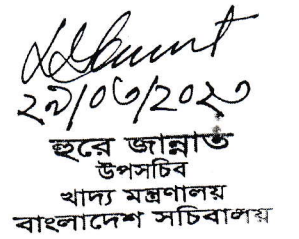 ২৯/০৩/২০২৩
হুরে জান্নাত
উপসচিব
খাদ্য মন্ত্রণালয়
বাংলাদেশ সচিবালয়